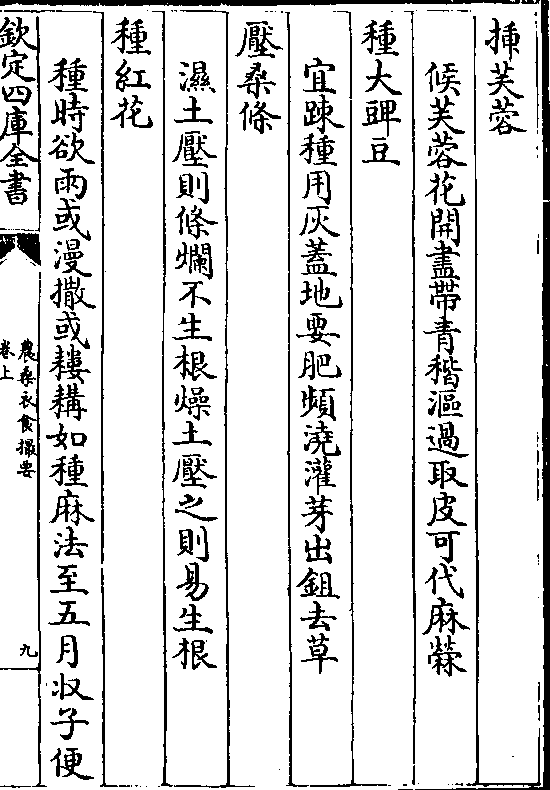 揷芙蓉
候芙蓉花開盡帶青稭漚過取皮可代麻檾
種大豍豆
宜踈種用灰蓋地要肥頻澆灌芽出鉏去草
壓桑條
濕土壓則條爛不生根燥土壓之則易生根
種紅花
種時欲雨或漫撒或耬耩如種麻法至五月收子便
欽定四庫全書
農桑衣食撮要
卷上
九